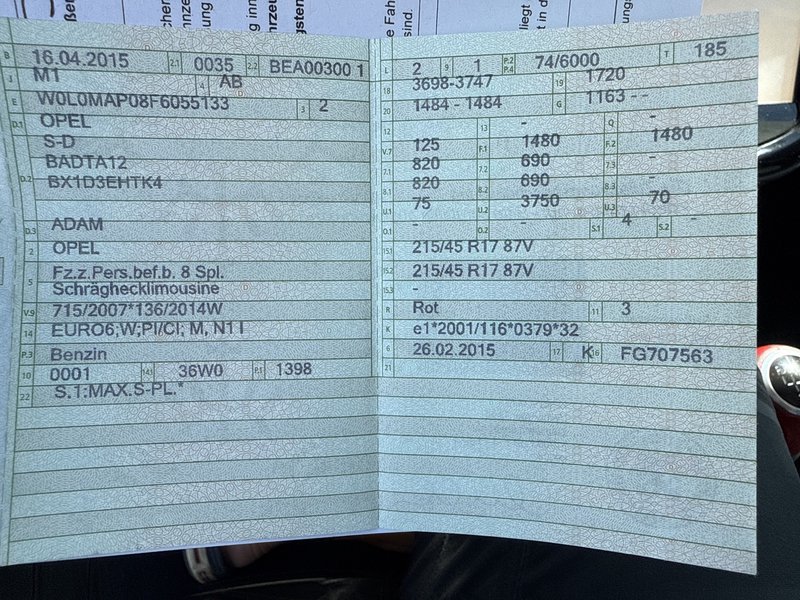 B 16.04.2015 2.1 0035 2.2 BEA00300 1
J M1 4 AB
E W0L0MAP08F6055133 3 2
D.1 OPEL
S-D
BADTA12
D.2 BX1D3EHTK4
D.3 ADAM
2 OPEL
5 Fz.z.Pers.bef.b. 8 Spl.
Schräghecklimousine
V.9 715/2007*136/2014W
14 EURO6;W;PI/CI; M, N1 I
P.3 Benzin
10 0001 14.1 36W0 P.1 1398
22 S.1:MAX.S-PL.*
L 2 9 1 P.2 P.4 74/6000 T 185
18 3698-3747 19 1720
20 1484 - 1484 G 1163 - -
12 - 13 - Q -
V.7 125 F.1 1480 F.2 1480
7.1 820 7.2 690 7.3 -
8.1 820 8.2 690 8.3 -
U.1 75 U.2 3750 U.3 70
O.1 - O.2 - S.1 4 S.2 -
15.1 215/45 R17 87V
15.2 215/45 R17 87V
15.3 -
R Rot 11 3
K e1*2001/116*0379*32
6 26.02.2015 17 K 16 FG707563
21